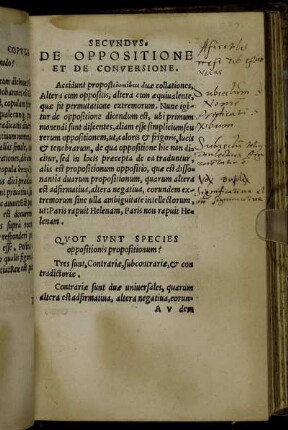 SECVNDVS.
DE OPPOSITIONE
ET DE CONVERSIONE.
Accidunt propositionibus duæ collationes,
Altera cum opposita, altera cum æquiualente,
quæ fit permutatione extremorum. Nunc igi-
tur de oppositione dicendum est, ubi primum
monendi sunt discentes, aliam esse simplicium seu
rerum oppositionem, ut, caloris & frigoris, lucis
& tenebrarum, de qua oppositione hic non di-
citur, sed in locis præcepta de ea traduntur,
alia est propositionum oppositio, quæ est disso-
nantia duarum propositionum, quarum altera
est adfirmatiua, altera negatiua, eorundem ex-
tremorum sine ulla ambiguitate intellectorum,
ut: Paris rapuit Helenam, Paris non rapuit He-
lenam.
QVOT SVNT SPECIES
oppositionis propositionum?
Tres sunt, Contrariæ, subcontrariæ, & con-
tradictoriæ.
Contrariæ sunt duæ uniuersales, quarum
altera est adfirmatiua, altera negatiua, eorun-
A v dem
Subiectum